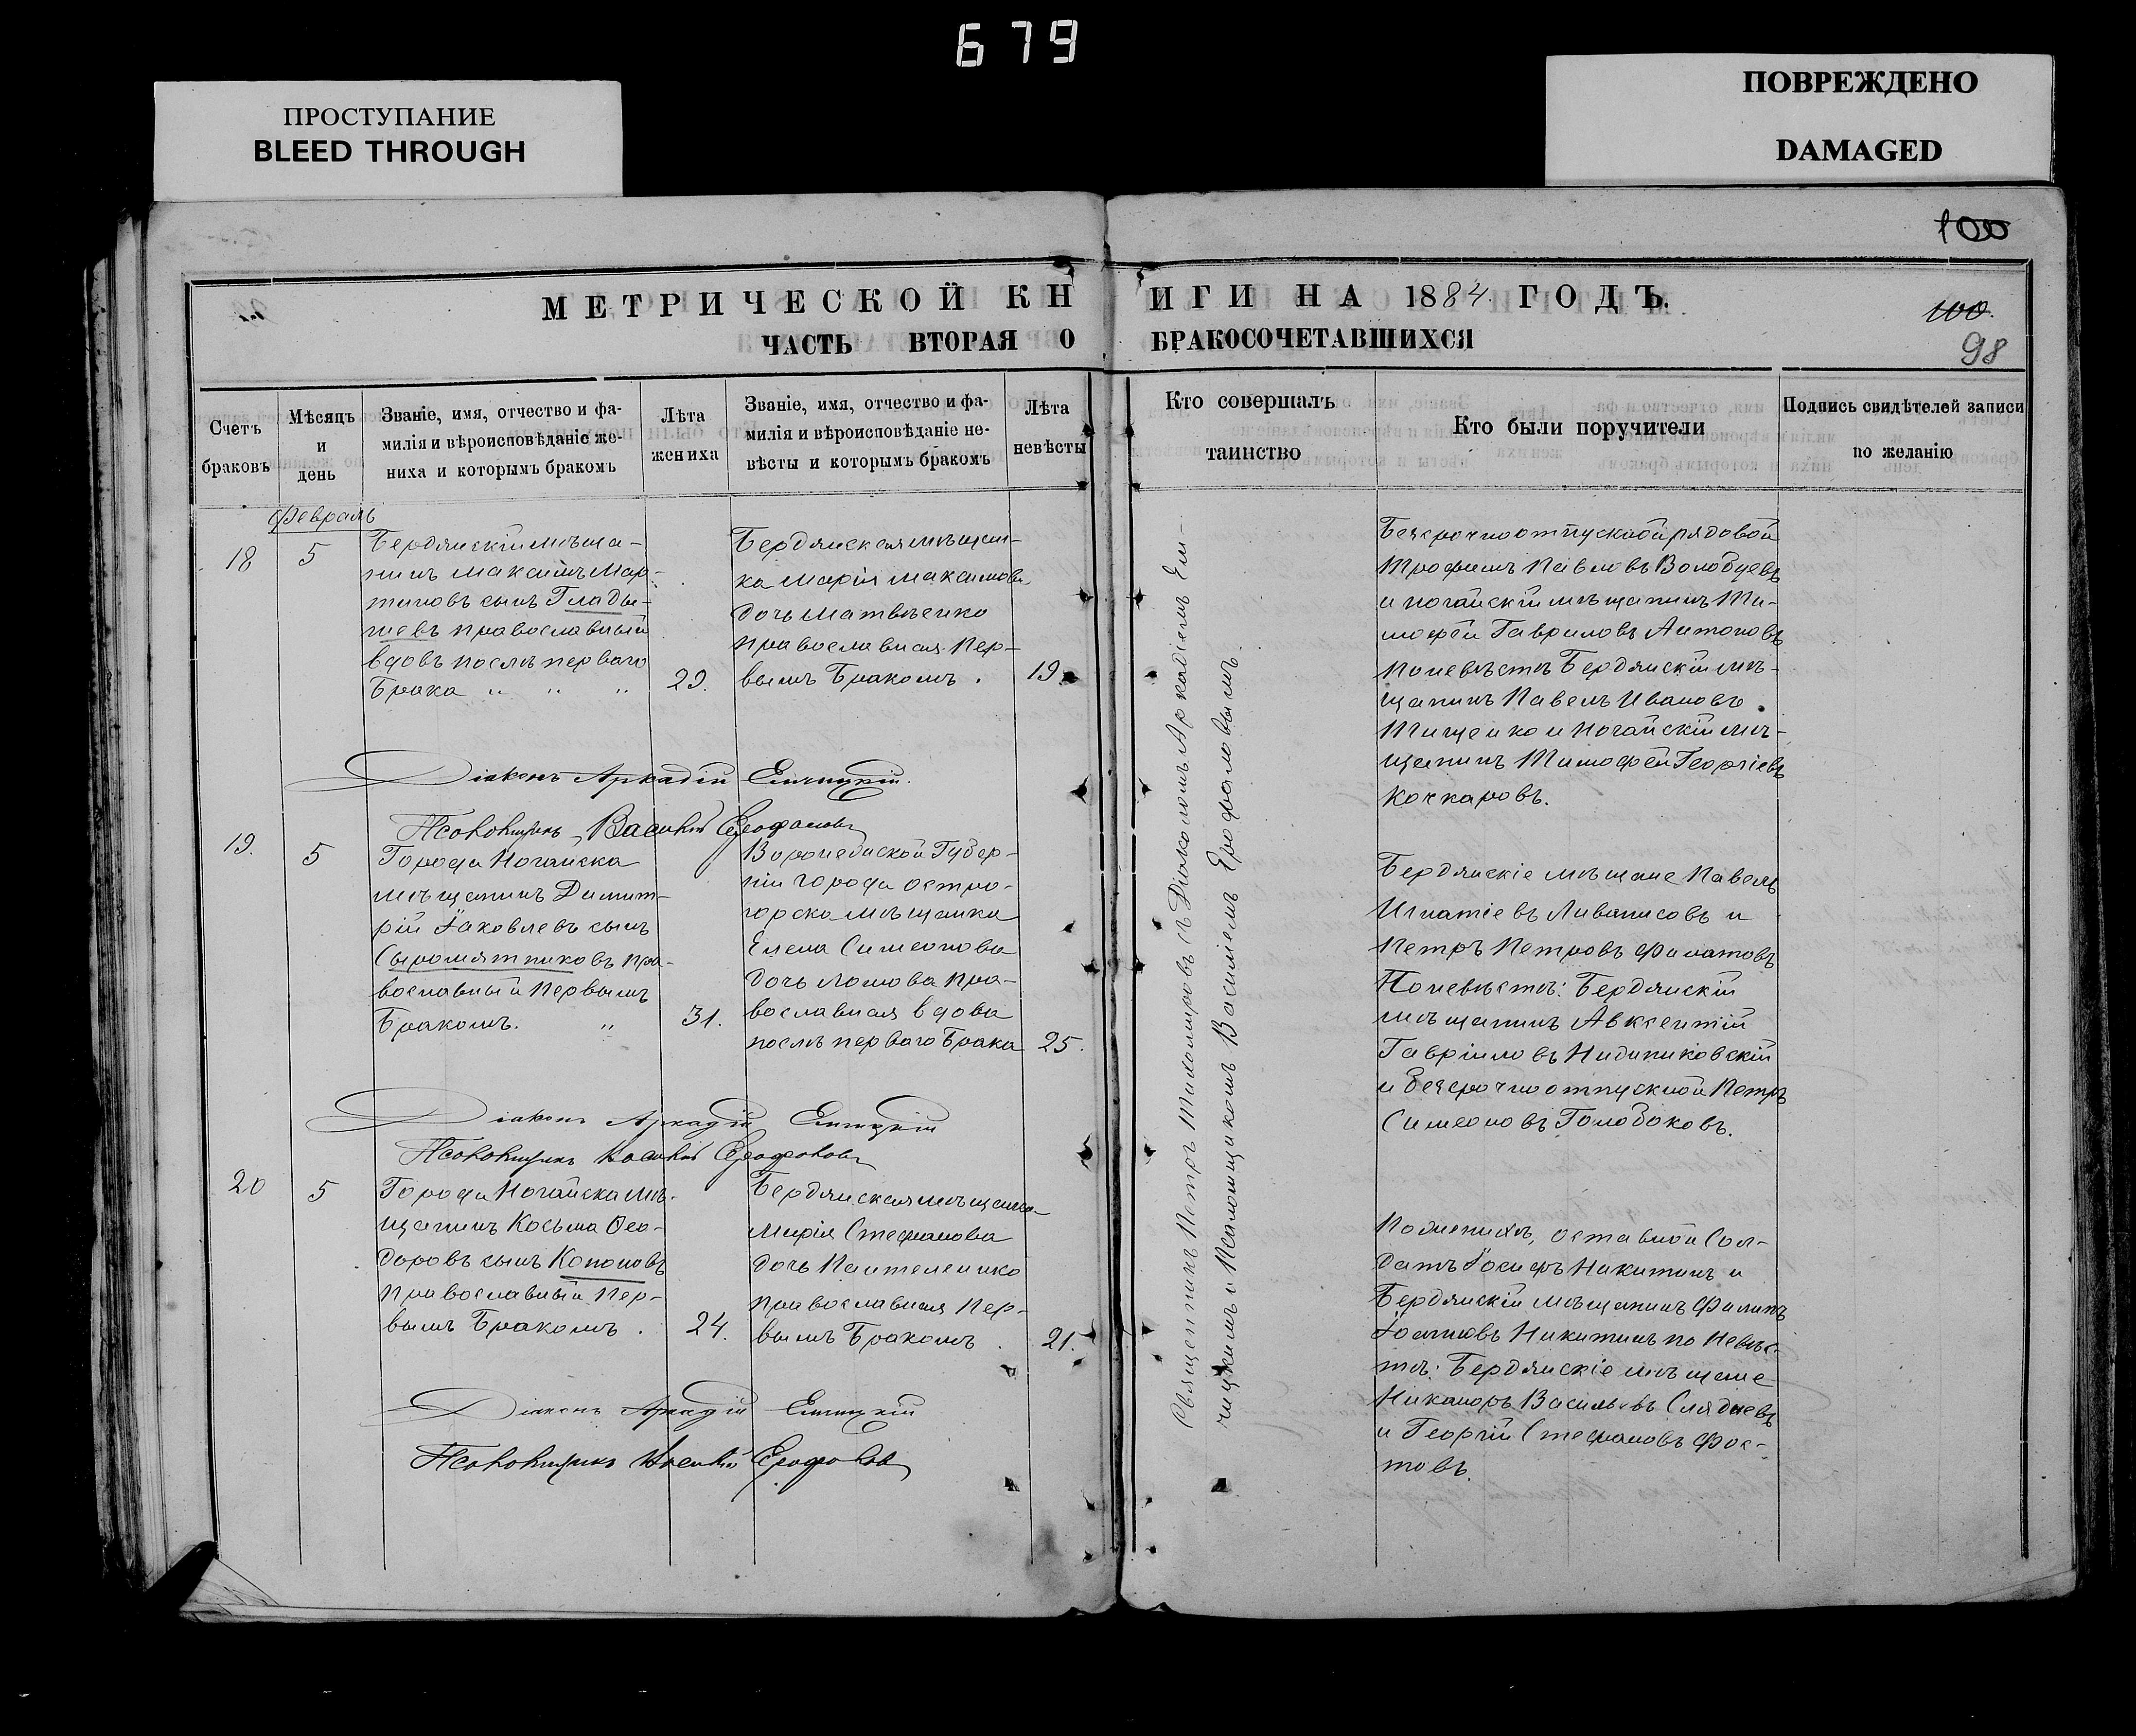 679
ПРОСТУПАНИЕ
BLEED THROUGH
ПОВРЕЖДЕНО
DAMAGED
100
МЕТРИЧЕСКОЙ КНИГИ НА 1884 ГОДЪ.
100.
ЧАСТЬ ВТОРАЯ О БРАКОСОЧЕТАВШИХСЯ
98
Счетъ
браковъ
Мѣсяцъ
и
день
Званіе, имя, отчество и фа-
милія и вѣроисповѣданіе же-
ниха и которымъ бракомъ
Лѣта
жениха
Званіе, имя, отчество и фа-
милія и вѣроисповѣданіе не-
вѣсты и которымъ бракомъ
Лѣта
невѣсты
Кто совершалъ
таинство
Кто были поручители
Подпись свидѣтелей записи
по желанію
Февраль
18
5
Бердянскій мѣща-
нинъ Максимъ Мар-
тиновъ сынъ Глады-
шевъ православный
вдовъ послѣ перваго
Брака " " "
29.
Бердянская мѣщан-
ка Марія Максимова
дочь Матвѣенко
православная Пер-
вымъ Бракомъ.
19.
Безсрочноотпускной рядовой
Трофимъ Павловъ Волобуевъ
и ногайскій мѣщанинъ Ти-
мофей Гавриловъ Антоновъ
Поневѣстѣ Бердянскій мѣ-
щанинъ Павелъ Ивановъ
Тищенко и Ногайскій мѣ-
щанинъ Тимофей Георгіевъ
Кочкаровъ.
Діаконъ Аркадій Емчицкій.
Псаломщикъ Василій Ерофаловъ
19.
5
Города Ногайска
мѣщанинъ Димит-
рій Іаковлевъ сынъ
Сыромятниковъ пра-
вославный Первымъ
Бракомъ. "
31.
Воронежской Губер-
ніи города остро-
горска мѣщанка
Елена Симеонова
дочь Ломова пра-
вославная вдова
послѣ перваго Брака
25.
Бердянскіе мѣщане Павелъ
Игнатіевъ Ливанисовъ и
Петръ Петровъ Филатовъ
Поневѣстѣ: Бердянскій
мѣщанинъ Авксентій
Гавріиловъ
и безсрочноотпускной Петръ
Симеоновъ Голобоковъ.
Діаконъ Аркадій Емчицкій
Псаломщикъ Василій Ерофаловъ
20
5
Города Ногайска мѣ-
щанинъ Косьма Ѳео-
доровъ сынъ Кононовъ
православный Пер-
вымъ Бракомъ.
24.
Бердянская мѣщанка
Марія Стефанова
дочь Пантелеенко
православная Пер-
вымъ Бракомъ.
21.
Поженихѣ, оставной Сол-
датъ Іосифъ Никитинъ и
Бердянскій мѣщанинъ Филипъ
Никитинъ по Невѣс-
тѣ: Бердянскіе мѣщане
Никаноръ Васильевъ Слядневъ
и Георгій Стефановъ Фос-
товъ.
Діаконъ Аркадій Емчицкій
Псаломщикъ Василій Ерофаловъ
Священникъ Петръ Тихомировъ съ Діакономъ Аркадіемъ Ем-
чицкимъ и Псаломщикомъ Василіемъ Ерофаловымъ.